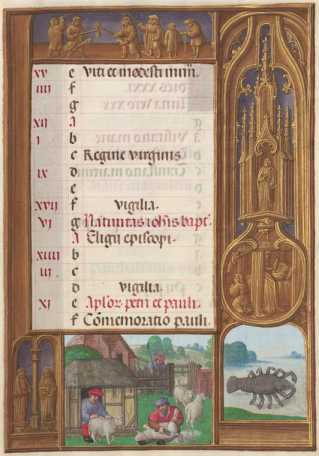 xv e Viti et modesti mrm.
iiii f
g
xii A
i b
c Regine virginis
ix d
e
xvii f vigilia.
vi g Natiuitas iohis bapt.
A Eligii episcopi.
xiiii b
iii c
d vigilia.
xi e Aplor petri et pauli.
f Comemoratio pauli.